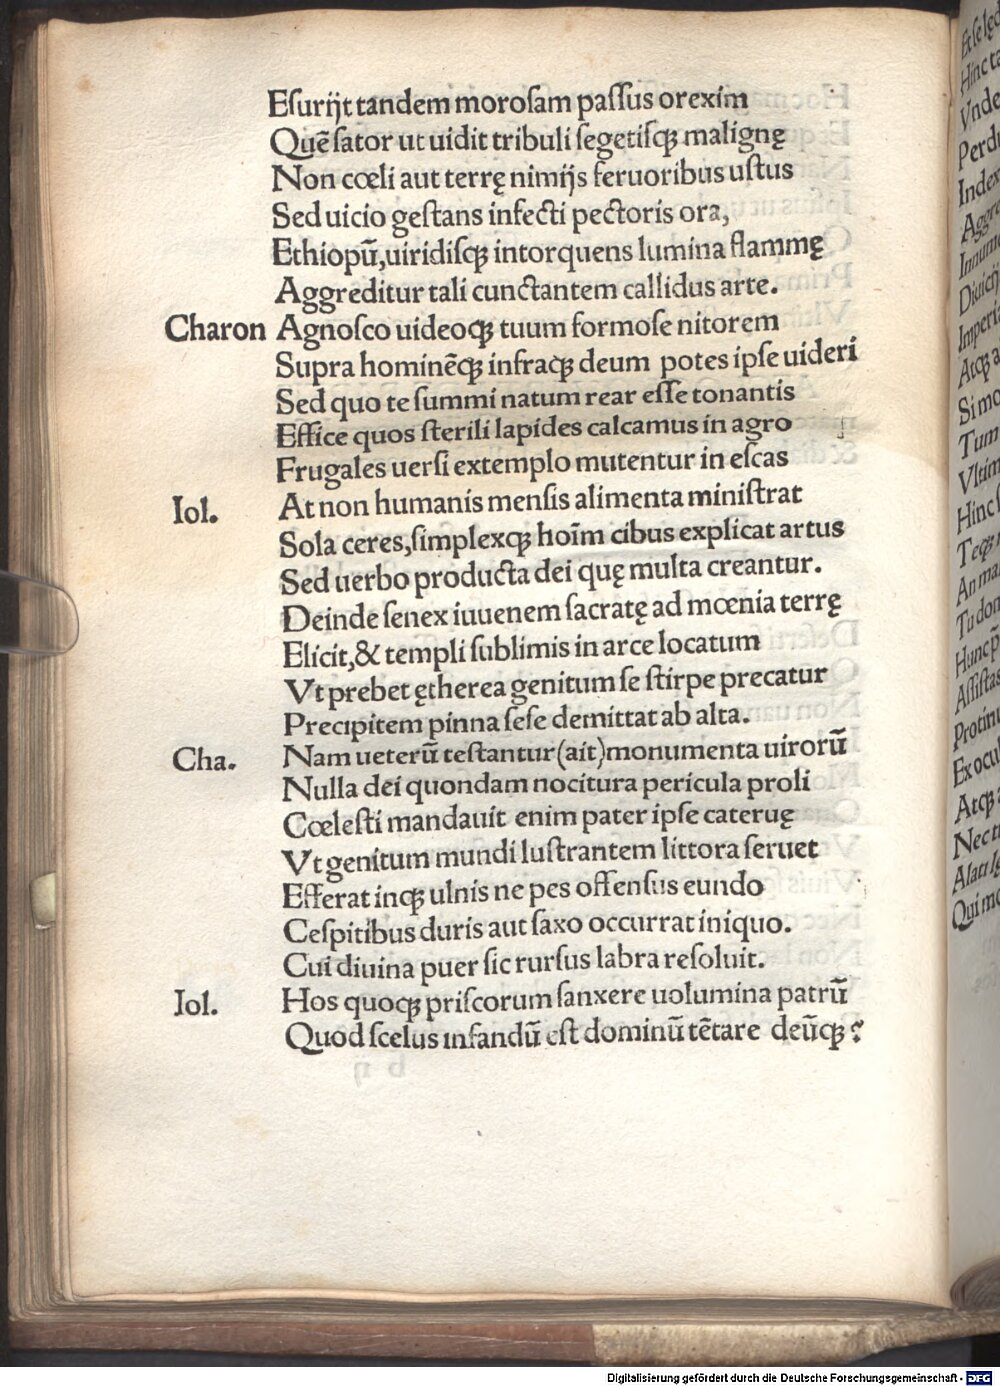 Eſurijt tandem moroſam paſſus orexim
Quē ſator ut uidit tribuli ſegetiſqꝫ malignę
Non cœli aut terrę nimijs feruoribus uſtus
Sed uicio geſtans infecti pectoris ora,
Ethiopū,uiridiſqꝫ intorquens lumina flammę
Aggreditur tali cunctantem callidus arte.
Charon Agnoſco uideoqꝫ tuum formoſe nitorem
Supra hominēqꝫ infraqꝫ deum potes ipſe uideri
Sed quo te ſummi natum rear eſſe tonantis
Effice quos ſterili lapides calcamus in agro
Frugales uerſi extemplo mutentur in eſcas
Iol. At non humanis menſis alimenta miniſtrat
Sola ceres,ſimplexqꝫ hoīm cibus explicat artus
Sed uerbo producta dei quę multa creantur.
Deinde ſenex iuuenem ſacratę ad mœnia terrę
Elicit,& templi ſublimis in arce locatum
Vt prebet ętherea genitum ſe ſtirpe precatur
Precipitem pinna ſeſe demittat ab alta.
Cha. Nam ueterū teſtantur(ait)monumenta uirorū
Nulla dei quondam nocitura pericula proli
Cœleſti mandauit enim pater ipſe cateruę
Vt genitum mundi luſtrantem littora ſeruet
Efferat inqꝫ ulnis ne pes offenſus eundo
Ceſpitibus duris aut ſaxo occurrat iniquo.
Cui diuina puer ſic rurſus labra reſoluit.
Iol. Hos quoqꝫ priſcorum ſanxere uolumina patrū
Quod ſcelus infandū eſt dominū tētare deūqꝫ?
Et ſe
Hinc
Vnde
Perd
Index
Aggre
Innum
Diuicij
Imperia
Atqꝫ a
Si mo
Tum
Vltim
Hinc
Teqꝫ
An ma
Tu don
Hunc
Aſſiſtas
Protinu
Ex ocul
Atqꝫ
Nec tu
Alati
Qui mo
Digitalisierung gefördert durch die Deutsche Forschungsgemeinschaft - DFG